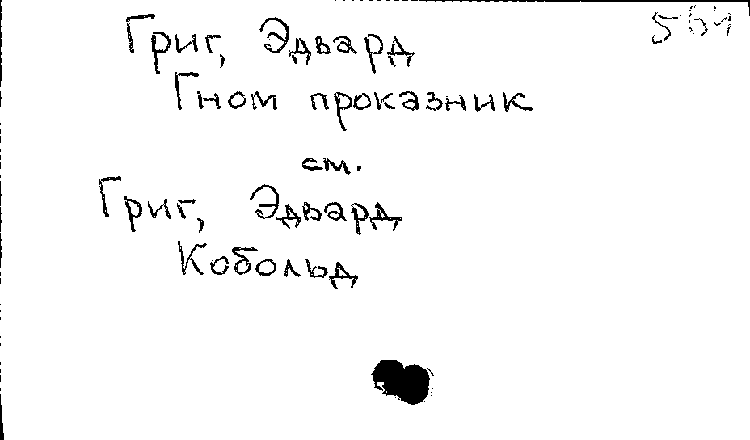 Григ, Эдвард
Гном проказник
см.
Григ, Эдвард
Кобольд